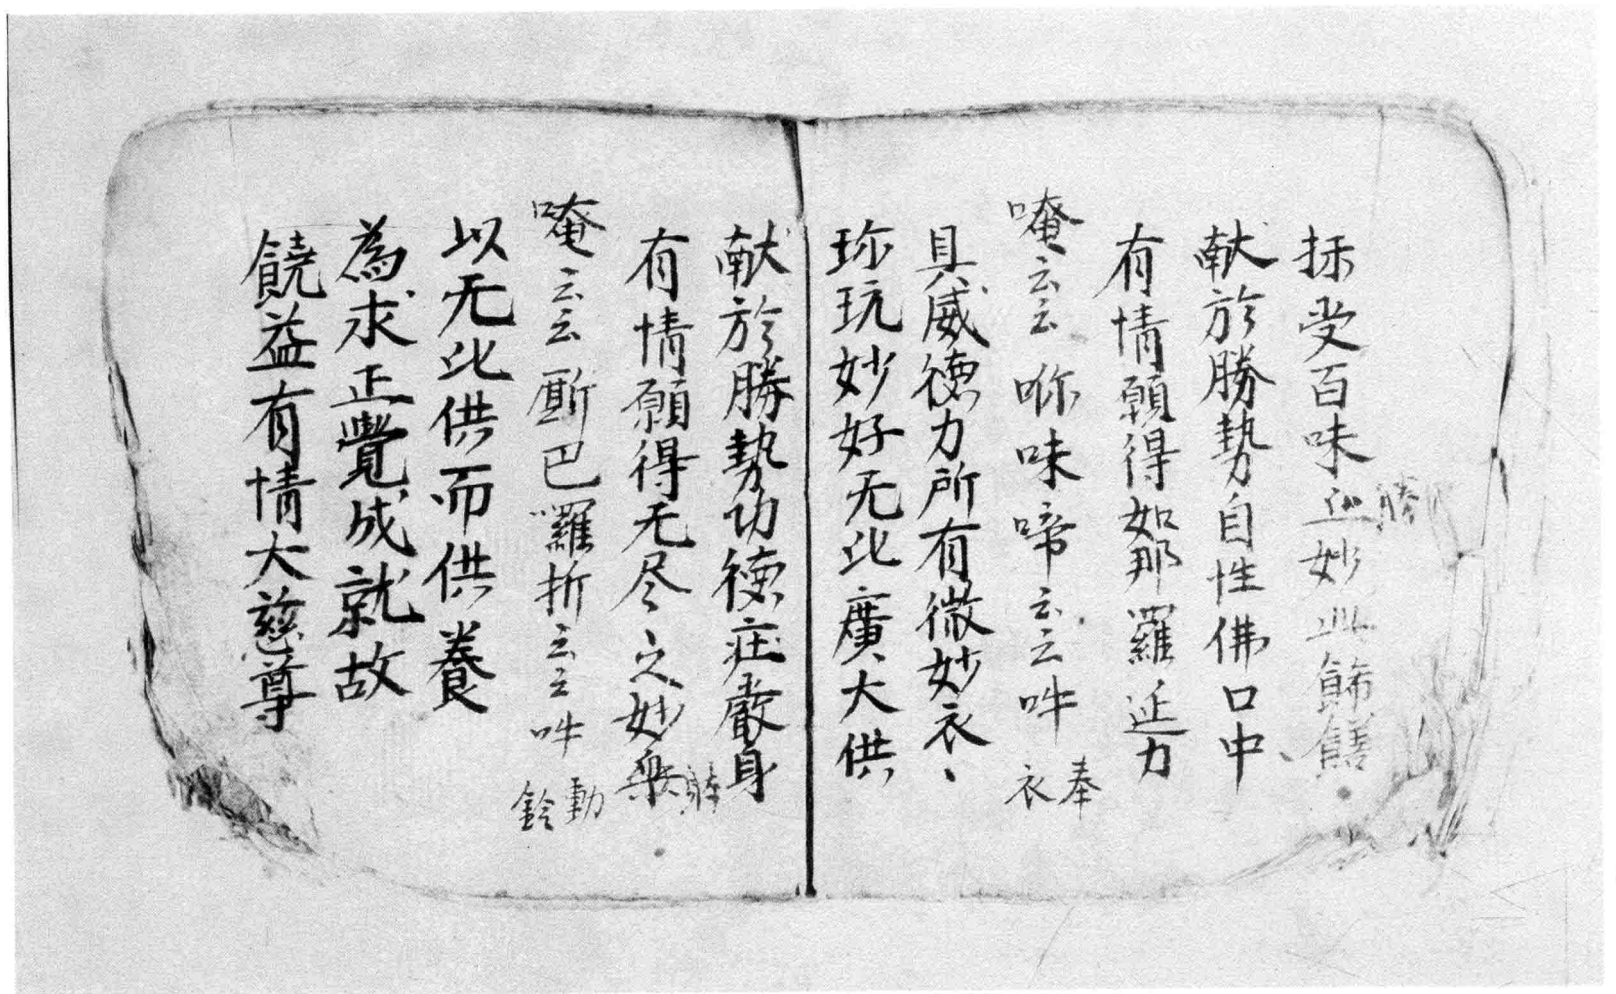 採受百味㳂妙此餙饍
勝
献於勝勢自性佛口中
有情願得如那羅延力
唵云云 㖿味啼云云吽 奉衣
具威德力所有微妙衣
珎玩妙好无比廣大供
献於勝勢功德庄嚴身
有情願得无尽之妙樂
唵云云厮巴囉折云云吽 動鈴
以无比供而供養
為求正覺成就故
饒益有情大慈尊